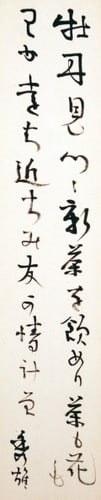 牡丹見つゝ新茶を飲めり茶も花も
遠ち近ちみ友の情
秀雄